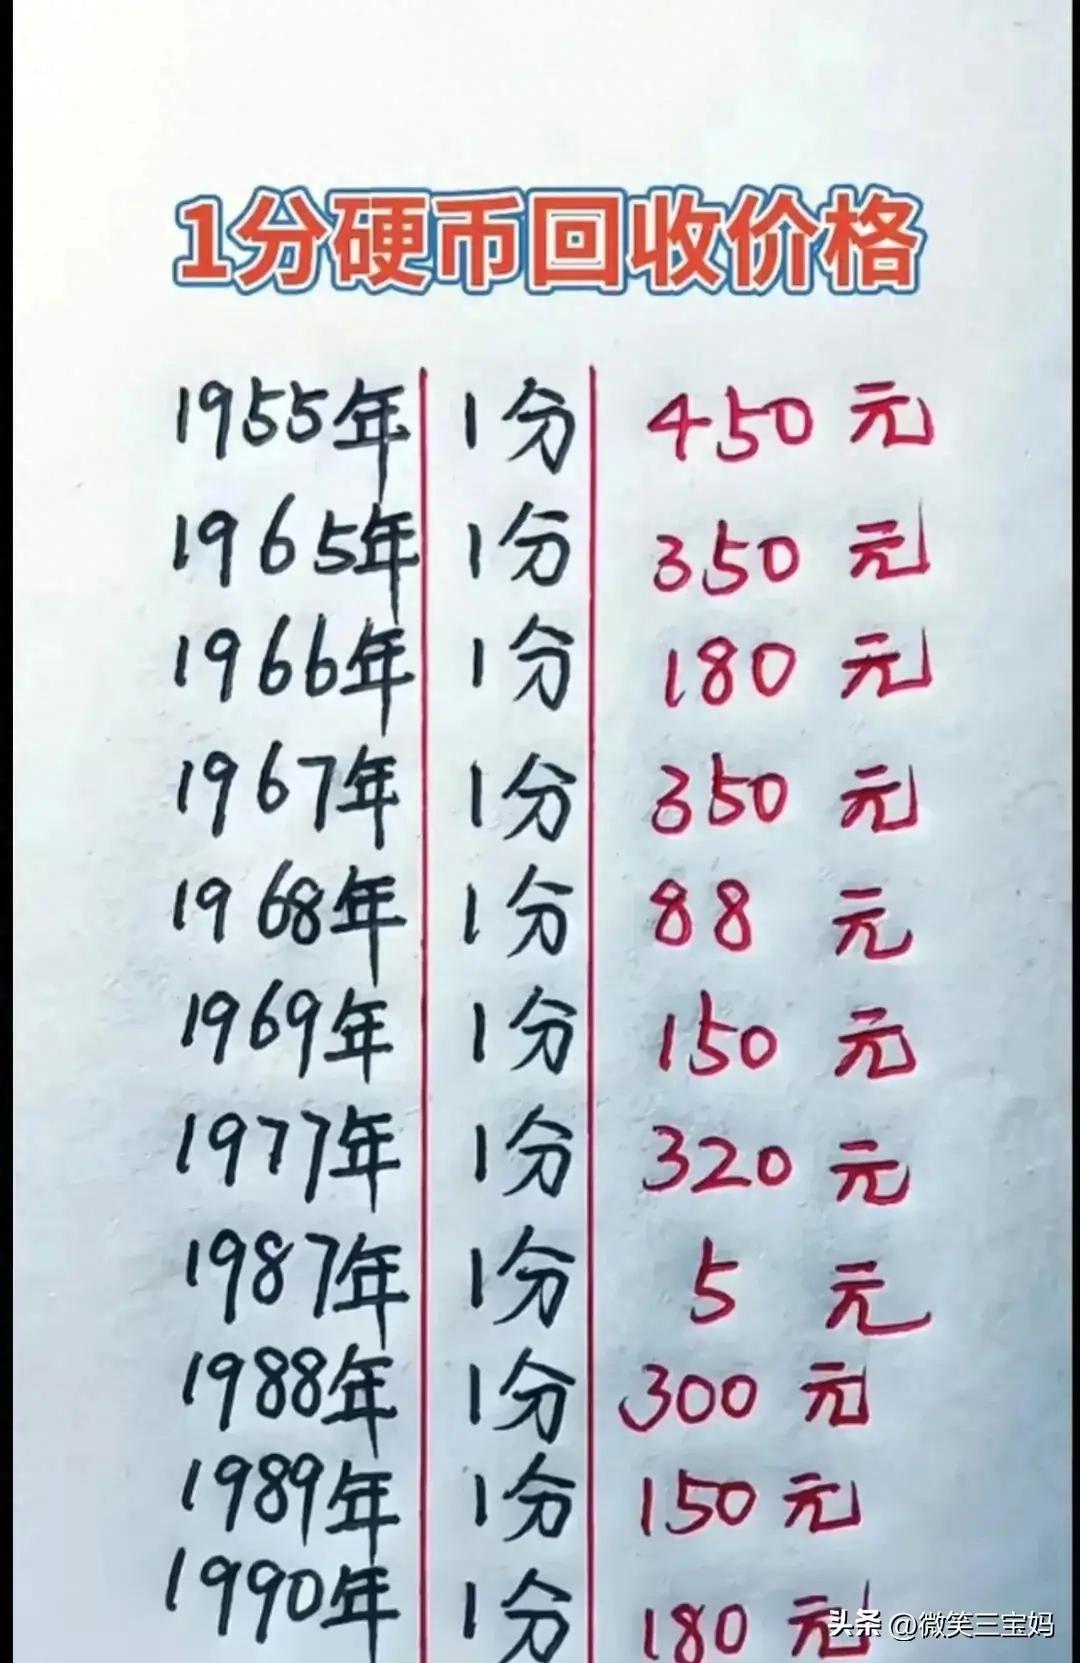 1分硬币回收价格
1955年 1分 450元
1965年 1分 350元
1966年 1分 180元
1967年 1分 350元
1968年 1分 88元
1969年 1分 150元
1977年 1分 320元
1987年 1分 5元
1988年 1分 300元
1989年 1分 150元
1990年 1分 180元
头条 @微笑三宝妈